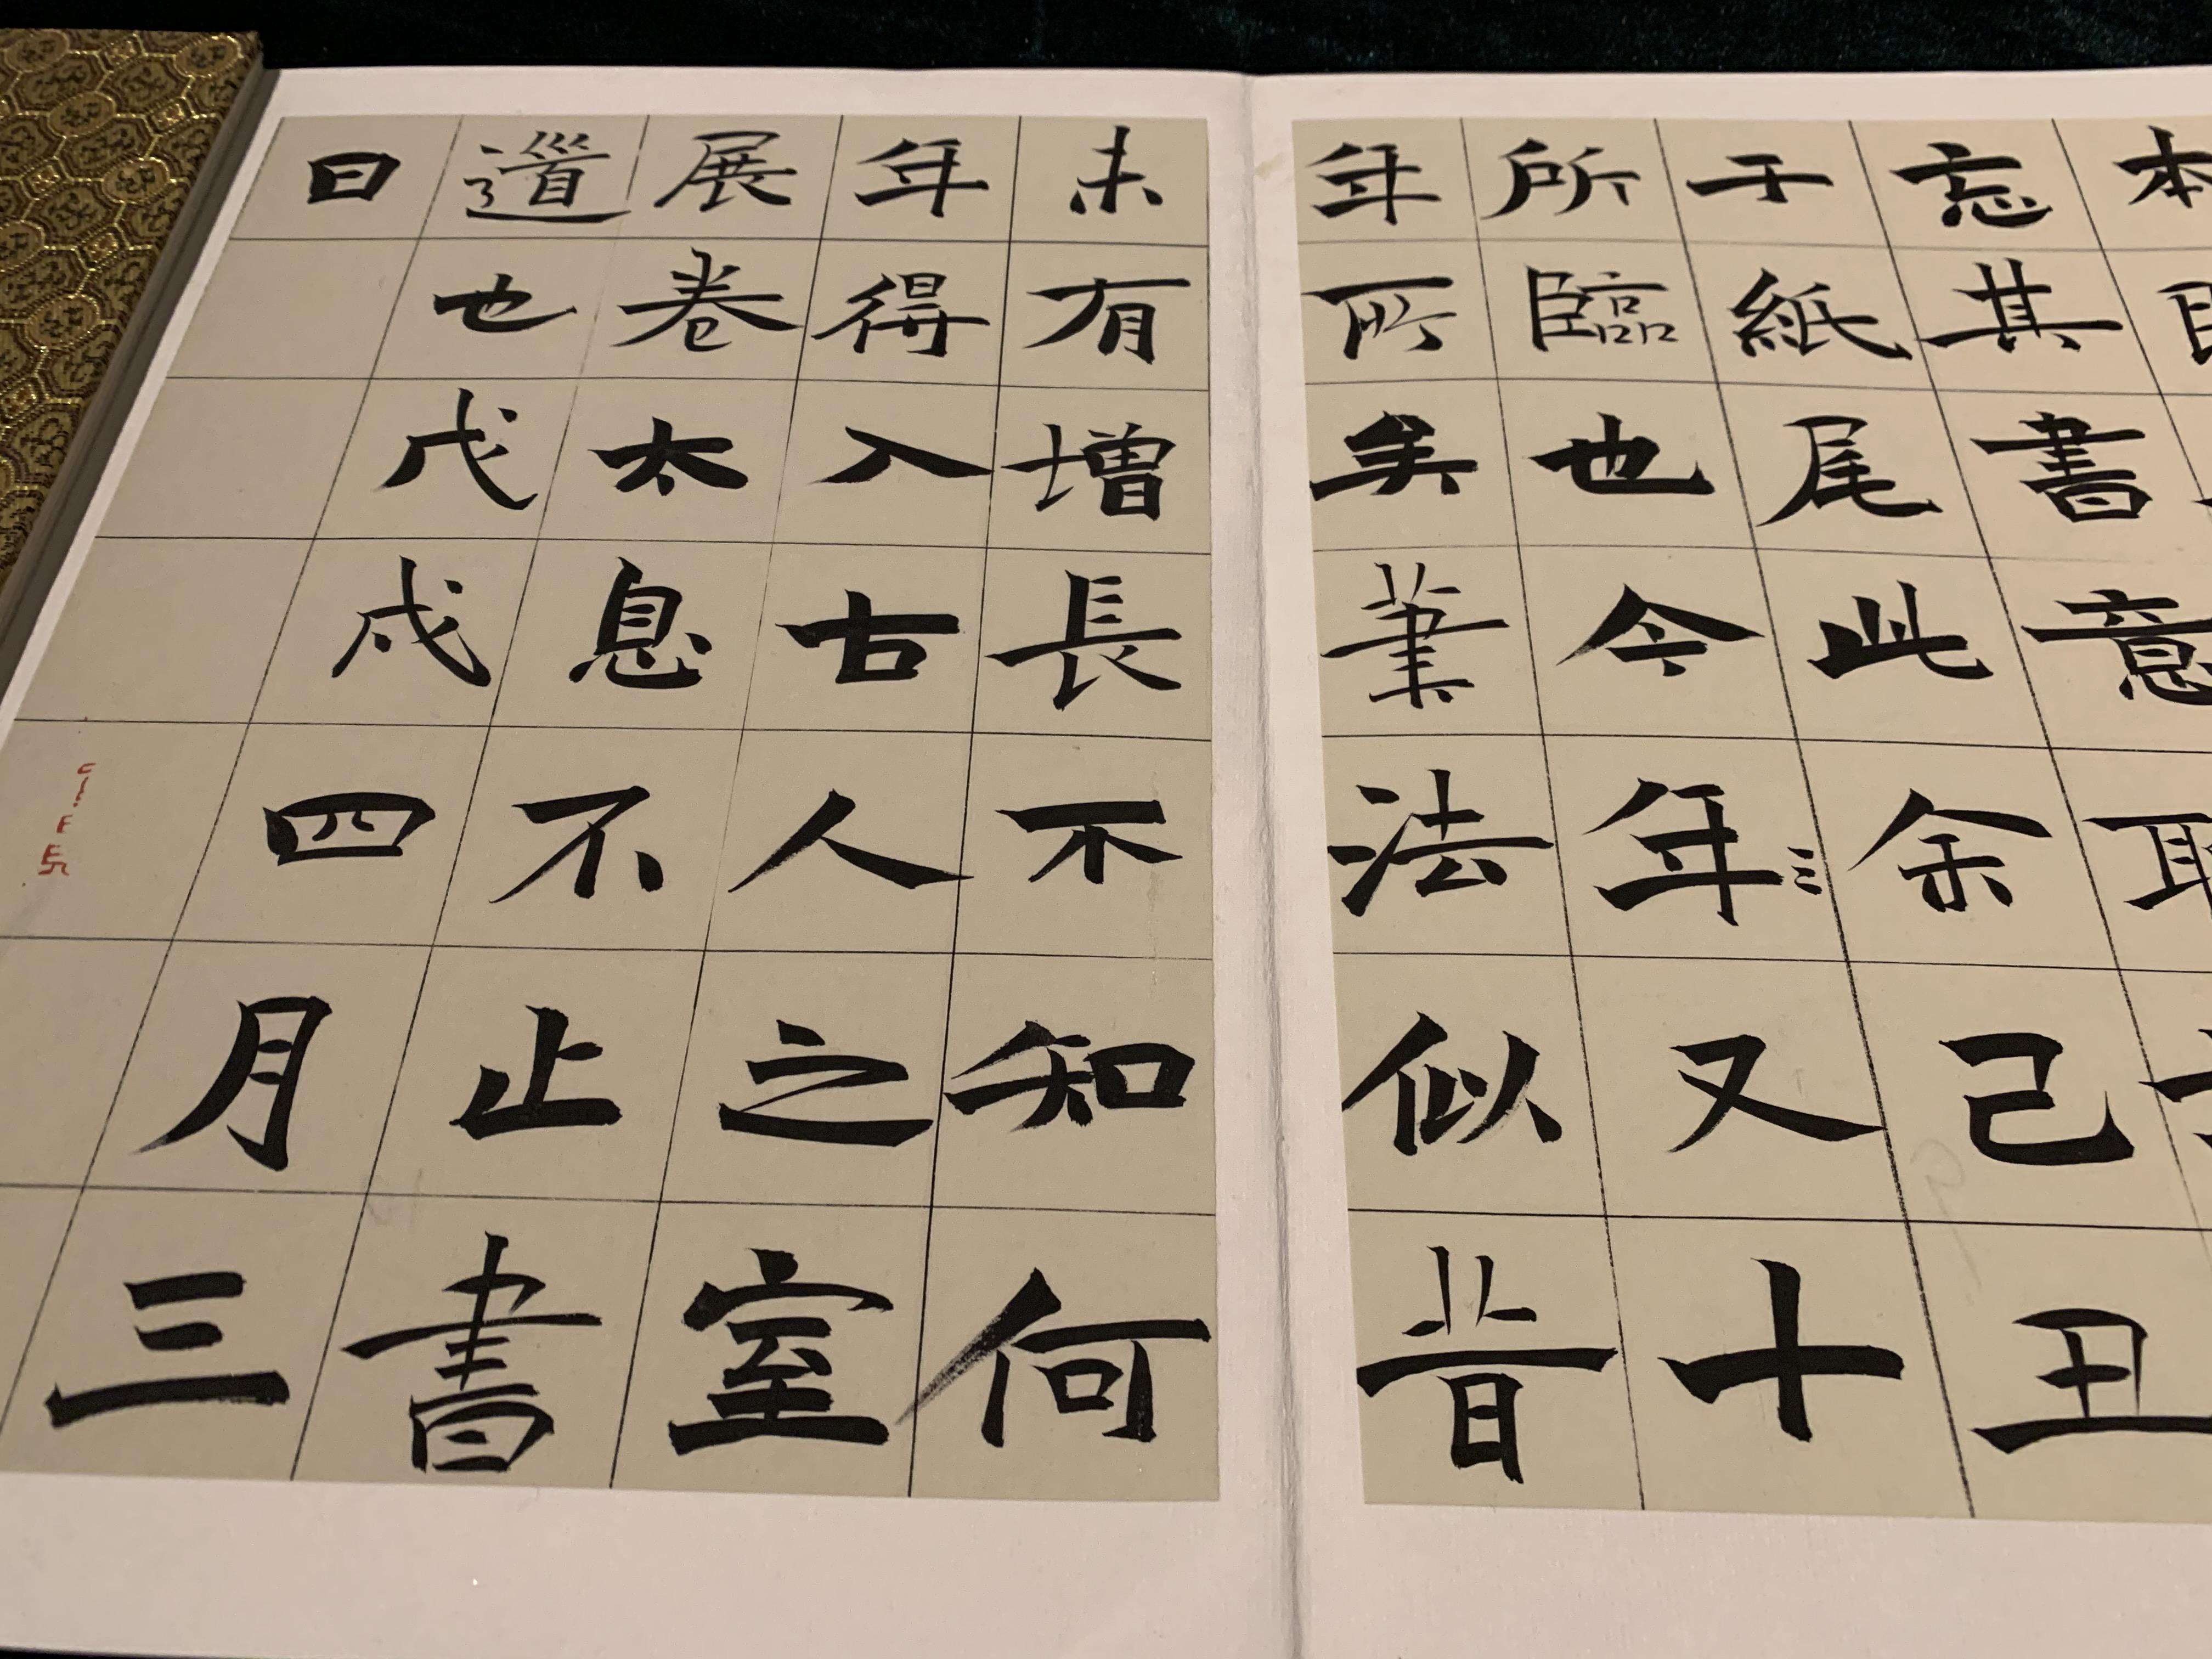 本
忘其書意
于紙尾此余己丑
所臨也今年又十
年所矣筆法似昔
未有增長不知何
年得入古人之室
展卷太息不止書
道也戊戌四月三
日